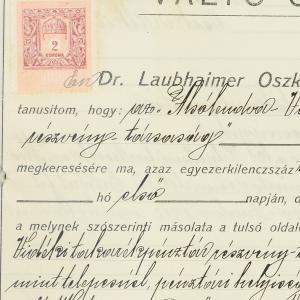 VÁLTÓ
2
KORONA
Én Dr. Laubhaimer Oszk
tanusitom, hogy: az "Alsólendva V
részvény társaság"
megkeresésére ma, azaz egyezerkilenczszáz
hó első napján, d
a melynek szószerinti másolata a tulsó oldal
Vidéki takarékpénztár részvény
mint telepesnél, pénztári helyisé